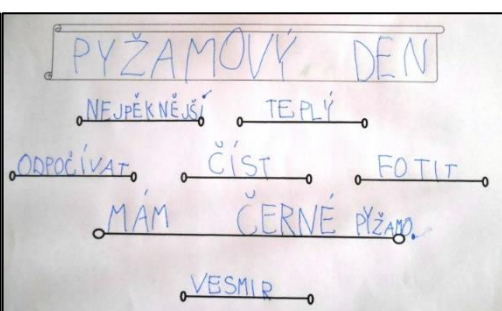 PYŽAMOVÝ DEN
NEJPĚKNĚJŠÍ TEPLÝ
ODPOČÍVAT ČÍST FOTIT
MÁM ČERNÉ PYŽAMO.
VESMIR